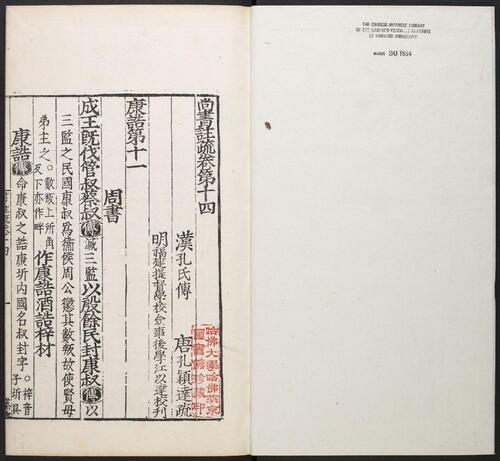 尚書註疏卷第十四
漢孔氏傳 唐孔穎達疏
明福建提督學校僉事後學江以達校刊
康誥第十一
周書
成王既伐管叔蔡叔傳滅三監以殷餘民封康叔傳以
三監之民國康叔為衛侯周公懲其數叛故使賢母
弟主之○數叛上所角
反下亦作畔作康誥酒誥梓材
康誥傳命康叔之誥康圻内國名叔封字○梓音
子圻具
哈佛大學哈佛燕京
圖書館珍藏印
THE CHINESE-JAPANESE LIBRARY
OF THE HARVARD-YENCHING INSTITUTE
AT HARVARD UNIVERSITY
MAR 30 1954